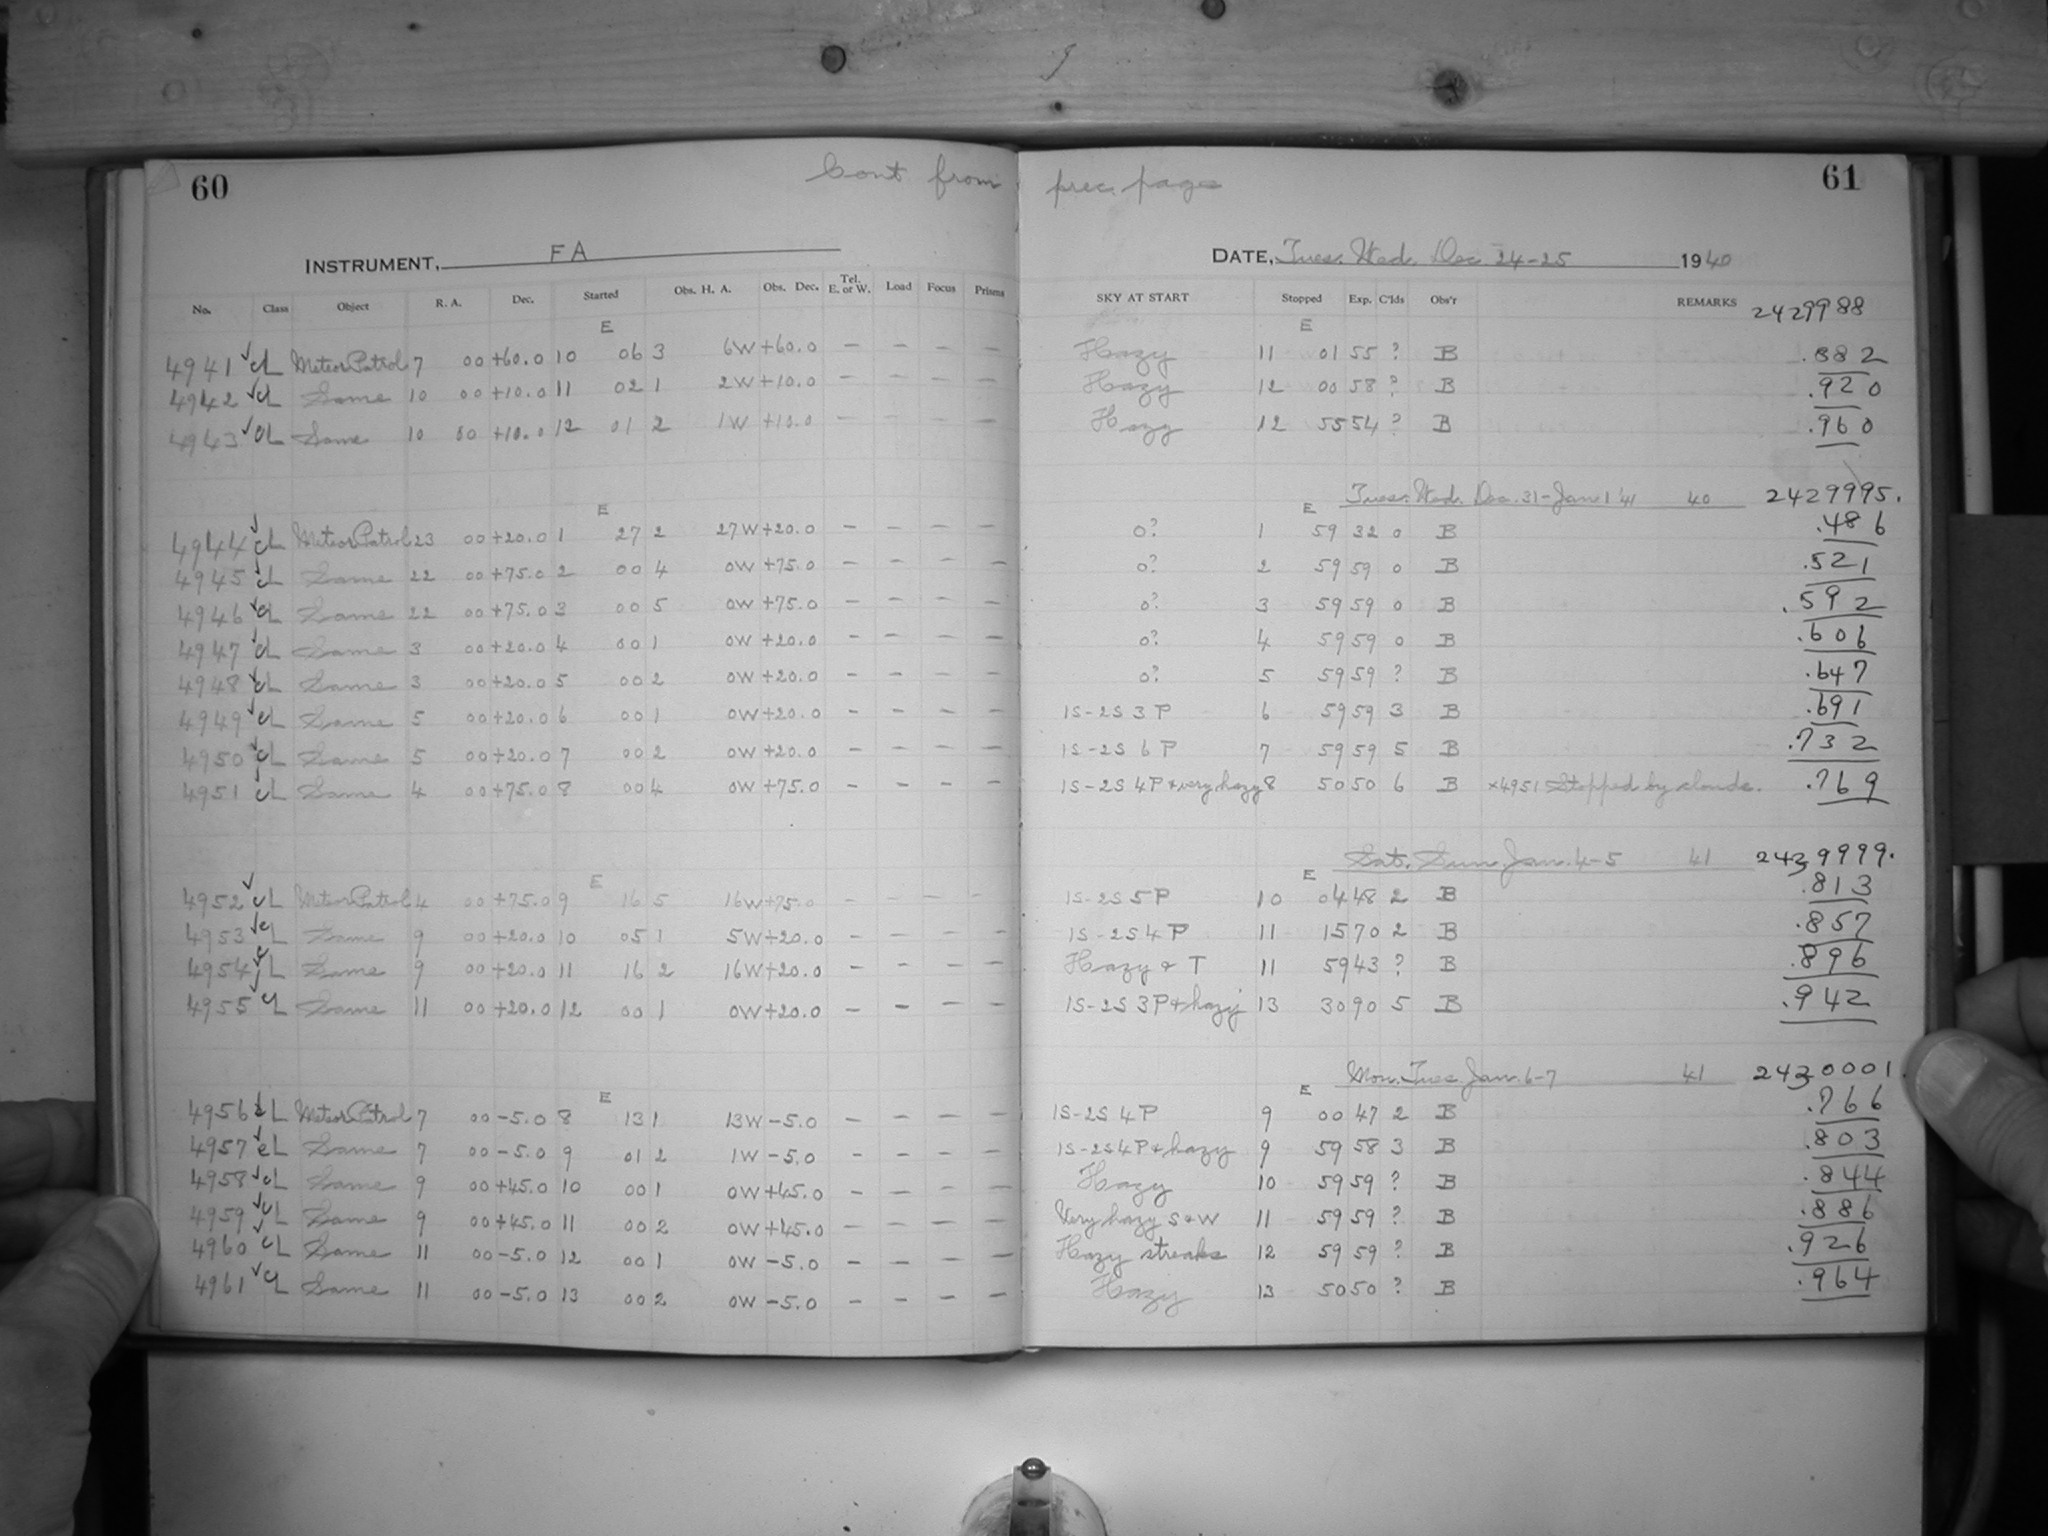 60 Cont from prec. page 61
INSTRUMENT, FA DATE, Tues. Wed. Dec. 24-25 1940
No. Class Object R. A. Dec. Started Obs. H. A. Obs. Dec. Tel. E. or W. Load Focus Prisms SKY AT START Stopped Exp. C'lds Obs'r REMARKS 2429988
E E
4941 ✓ cL Meteor Patrol 7 00 +60.0 10 06 3 6W +60.0 — — — — Hazy 11 01 55 ? B .882
4942 ✓ cL Same 10 00 +10.0 11 02 1 2W +10.0 — — — — Hazy 12 00 58 ? B .920
4943 ✓ cL Same 10 00 +10.0 12 01 2 1W +10.0 — — — — Hazy 12 55 54 ? B .960
E E Tues. Wed. Dec. 31-Jan 1 '41 40 2429995.
4944 ✓ cL Meteor Patrol 23 00 +20.0 1 27 2 27W +20.0 — — — — 0? 1 59 32 0 B .486
4945 ✓ cL Same 22 00 +75.0 2 00 4 0W +75.0 — — — — 0? 2 59 59 0 B .521
4946 ✓ cL Same 22 00 +75.0 3 00 5 0W +75.0 — — — — 0? 3 59 59 0 B .592
4947 ✓ cL Same 3 00 +20.0 4 00 1 0W +20.0 — — — — 0? 4 59 59 0 B .606
4948 ✓ cL Same 3 00 +20.0 5 00 2 0W +20.0 — — — — 0? 5 59 59 ? B .647
4949 ✓ cL Same 5 00 +20.0 6 00 1 0W +20.0 — — — — 1S-2S 3P 6 59 59 3 B .691
4950 ✓ cL Same 5 00 +20.0 7 00 2 0W +20.0 — — — — 1S-2S 6P 7 59 59 5 B .732
4951 ✓ cL Same 4 00 +75.0 8 00 4 0W +75.0 — — — — 1S-2S 4P + very hazy 8 50 50 6 B ×4951 Stopped by clouds. .769
E E Sat. Sun. Jan. 4-5 41 2429999.
4952 ✓ cL Meteor Patrol 4 00 +75.0 9 16 5 16W +75.0 — — — — 1S-2S 5P 10 04 48 2 B .813
4953 ✓ cL Same 9 00 +20.0 10 05 1 5W +20.0 — — — — 1S-2S 4P 11 15 70 2 B .857
4954 ✓ cL Same 9 00 +20.0 11 16 2 16W +20.0 — — — — Hazy & T 11 59 43 ? B .896
4955 ✓ cL Same 11 00 +20.0 12 00 1 0W +20.0 — — — — 1S-2S 3P + hazy 13 30 90 5 B .942
E E Mon. Tues. Jan. 6-7 41 2430001.
4956 ✓ cL Meteor Patrol 7 00 -5.0 8 13 1 13W -5.0 — — — — 1S-2S 4P 9 00 47 2 B .766
4957 ✓ cL Same 7 00 -5.0 9 01 2 1W -5.0 — — — — 1S-2S 4P + hazy 9 59 58 3 B .803
4958 ✓ cL Same 9 00 +45.0 10 00 1 0W +45.0 — — — — Hazy 10 59 59 ? B .844
4959 ✓ cL Same 9 00 +45.0 11 00 2 0W +45.0 — — — — Very hazy S + W 11 59 59 ? B .886
4960 ✓ cL Same 11 00 -5.0 12 00 1 0W -5.0 — — — — Hazy streaks 12 59 59 ? B .926
4961 ✓ cL Same 11 00 -5.0 13 00 2 0W -5.0 — — — — Hazy 13 50 50 ? B .964